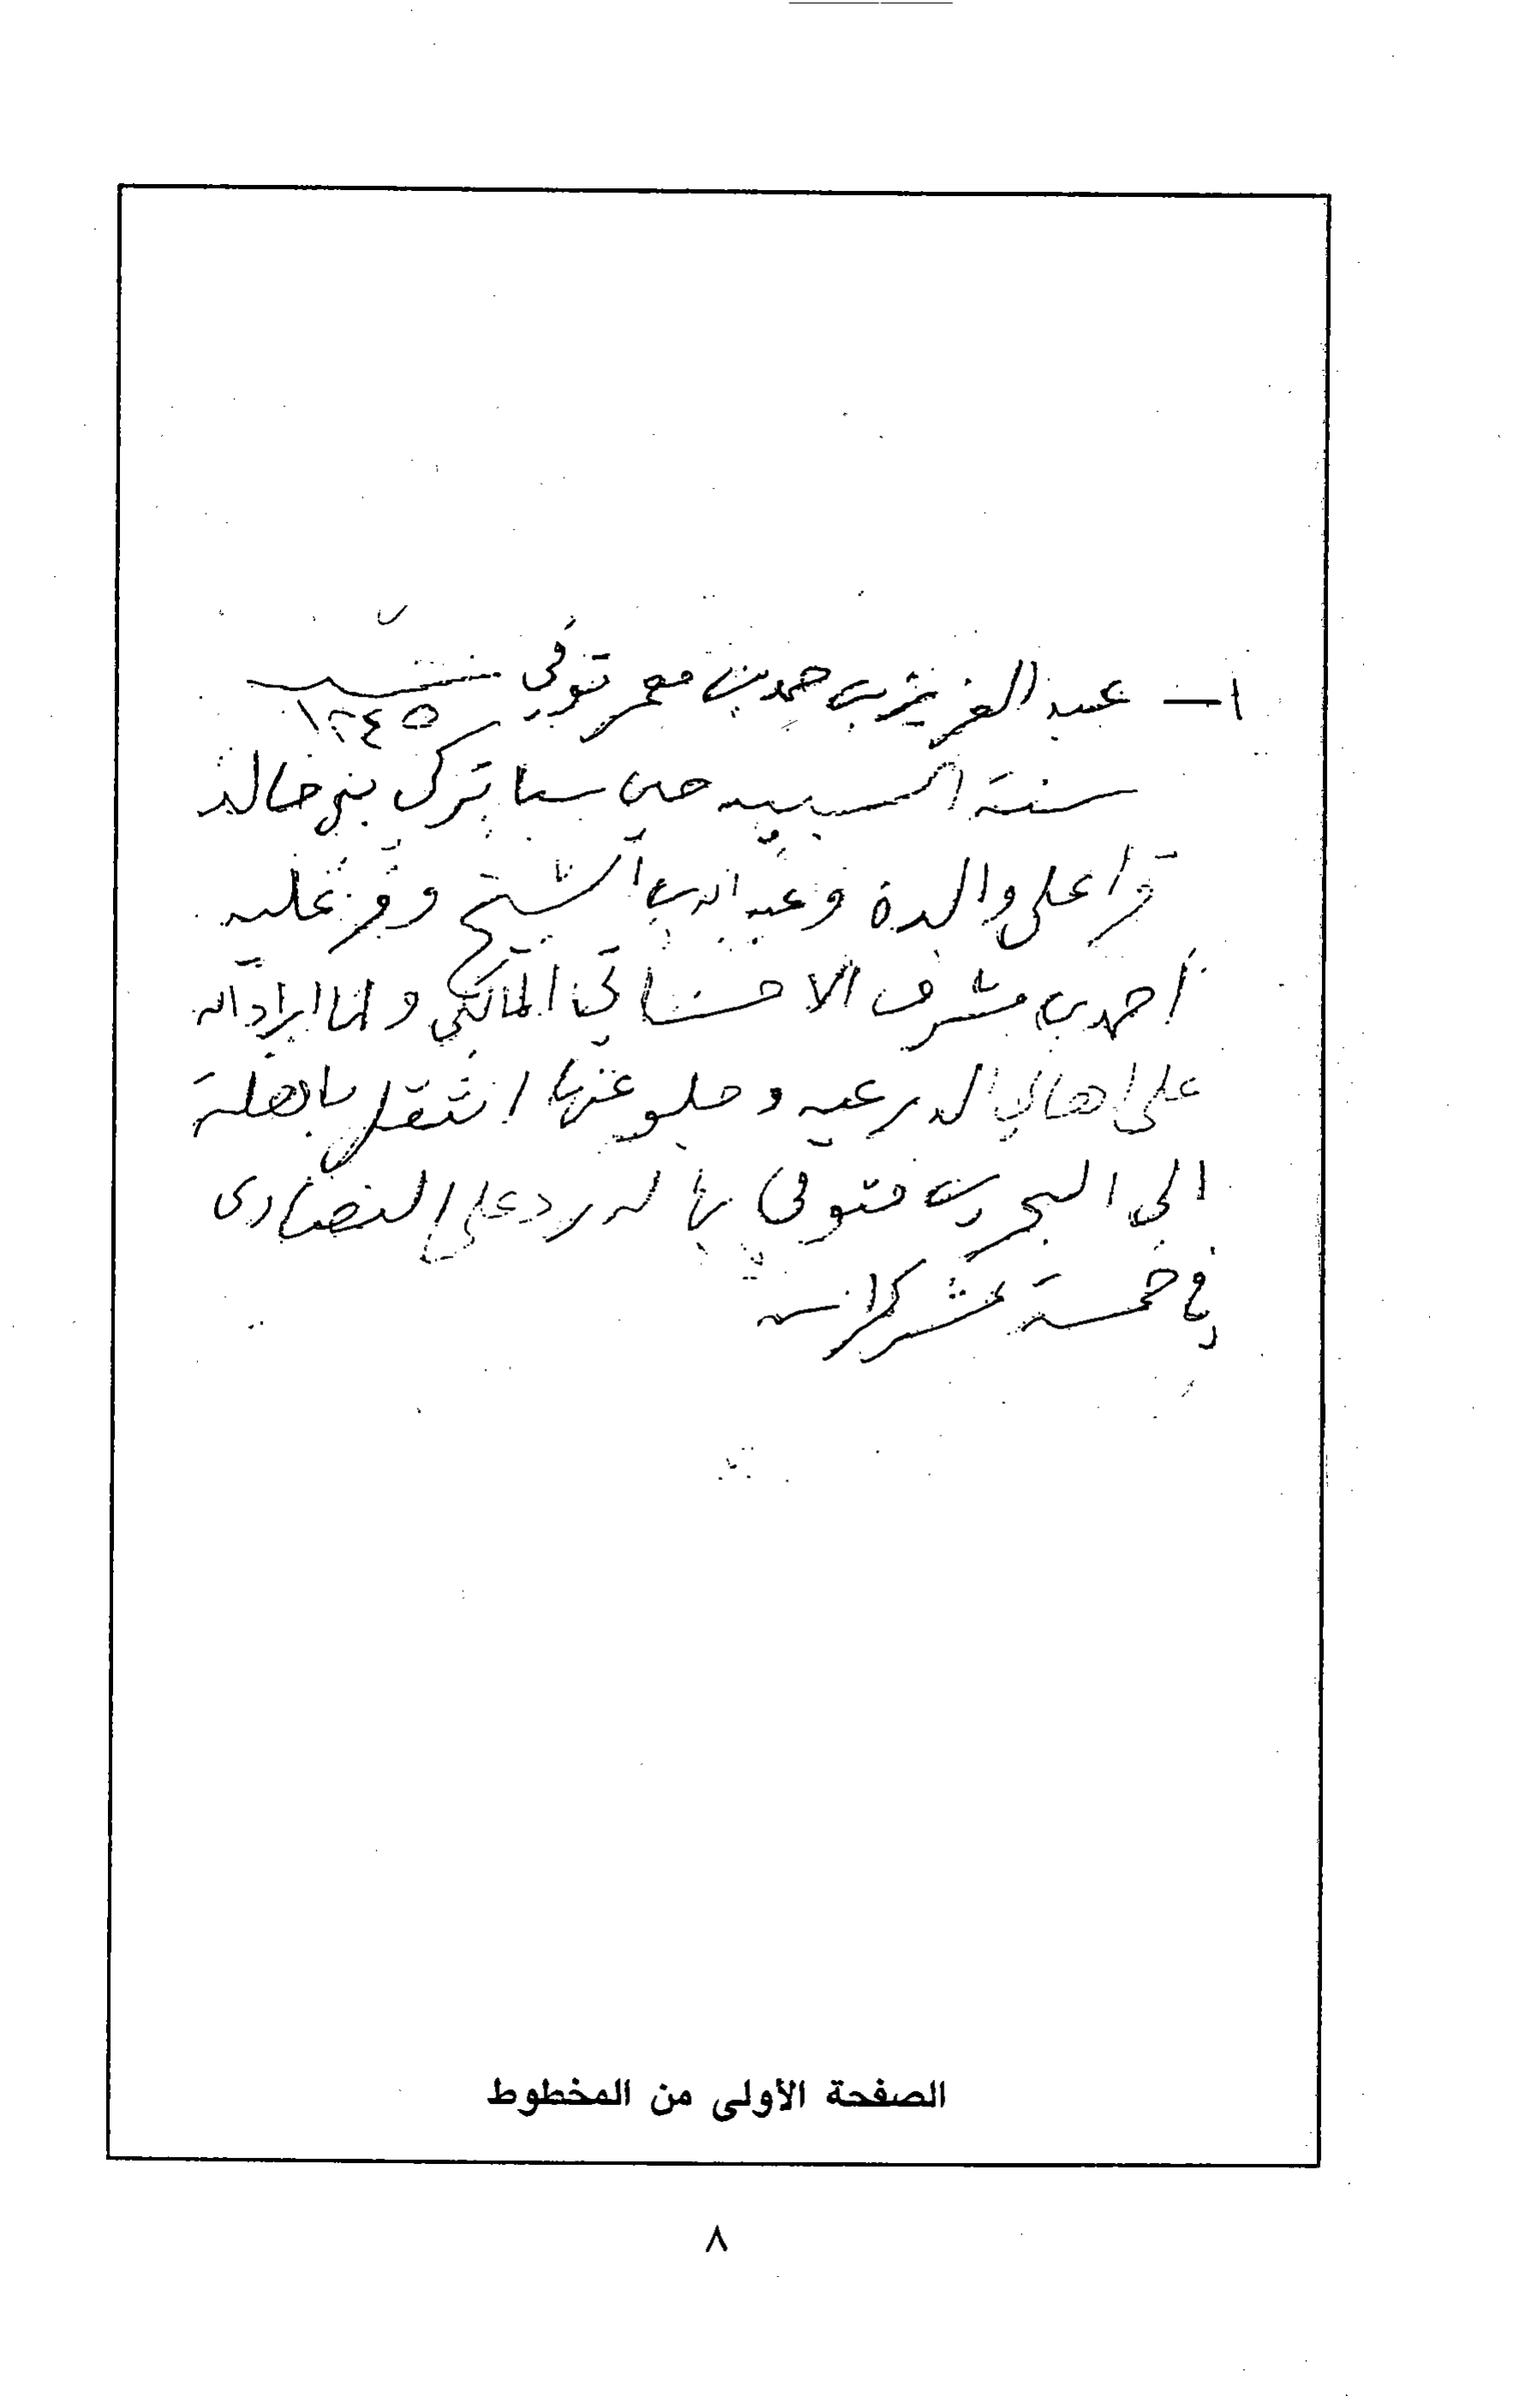 ١— عبد العزيز بن حمد بن معمر توفي سنة ١٢٤٥
سنة السبيه حين سبا تركي بني خالد
قرا على والده وعبد الله بن الشيخ وقرء عليه
أحمد بن مشرف الاحسائي المالكي ولما اراد الله
على اهالي الدرعيه وجلو عنها انتقل باهلة
الى البحرين فتوفى بها له رد على النصارى
في خمسة عشر كراسه
الصفحة الأولى من المخطوط
٨